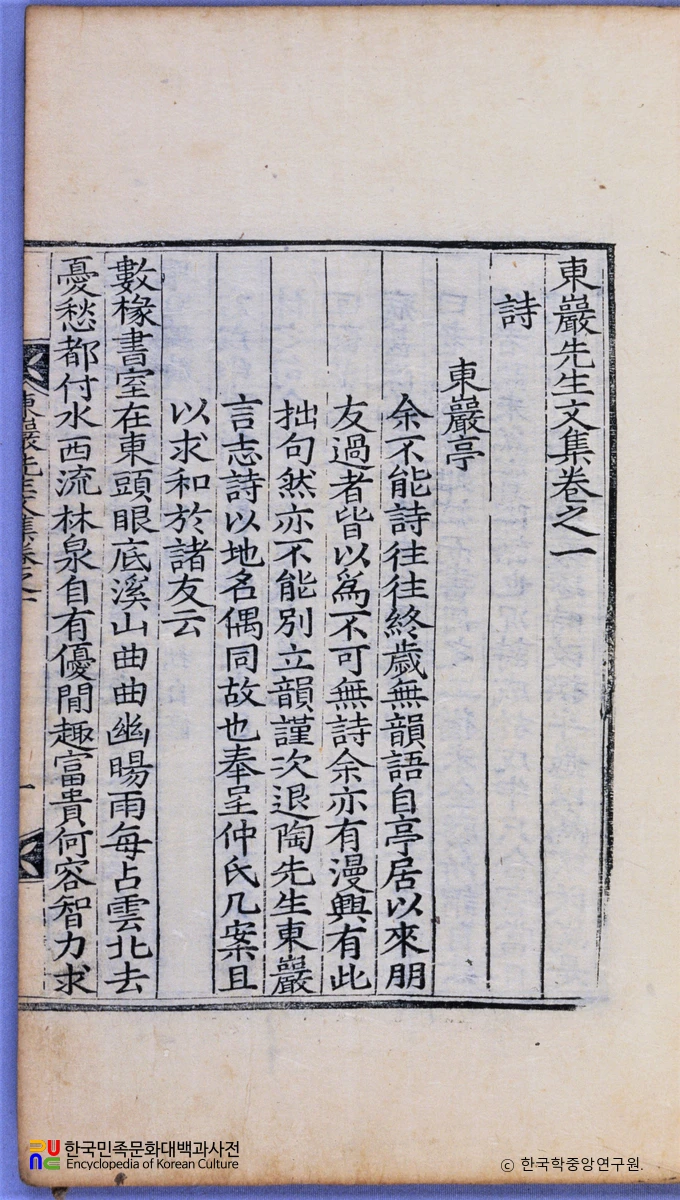 東巖先生文集卷之一
詩
東巖亭
余不能詩往往終歲無韻語自亭居以來朋
友過者皆以爲不可無詩余亦有漫興有此
拙句然亦不能別立韻謹次退陶先生東巖
言志詩以地名偶同故也奉呈仲氏几案且
以求和於諸友云
數椽書室在東頭眼底溪山曲曲幽暘雨每占雲北去
憂愁都付水西流林泉自有優閒趣富貴何容智力求
東巖先生文集卷之一
一
한국민족문화대백과사전
Encyclopedia of Korean Culture
© 한국학중앙연구원.